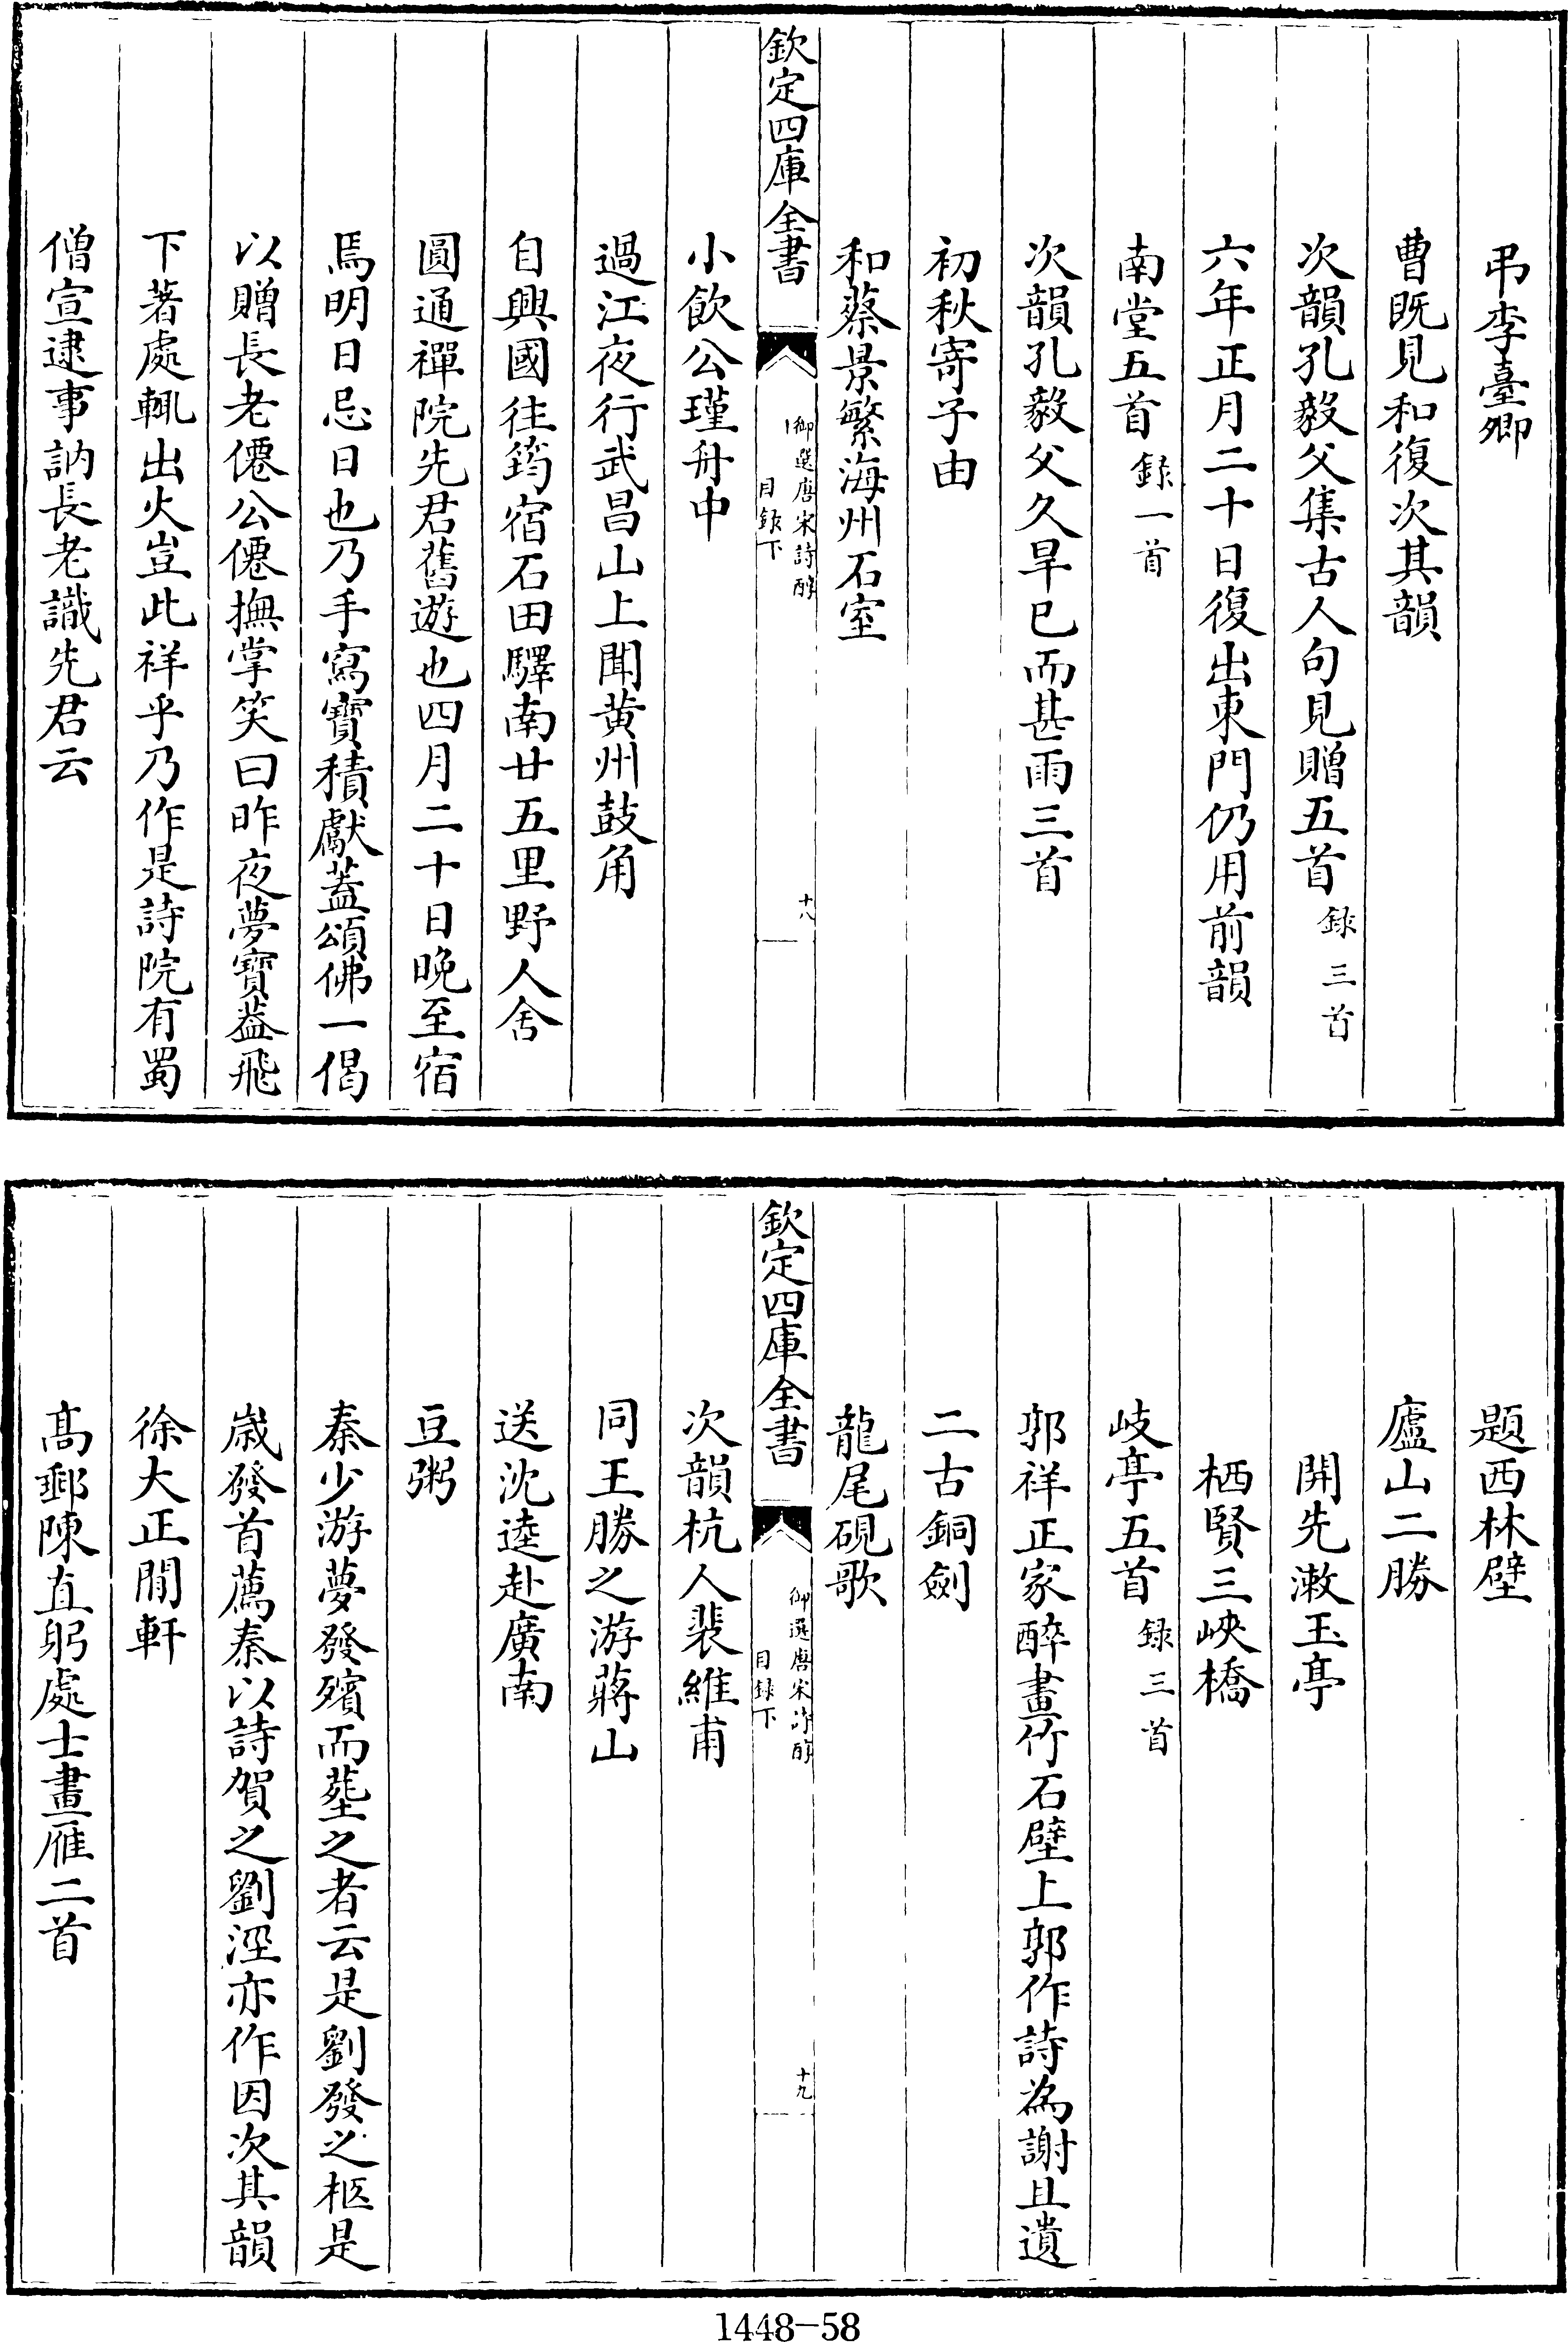 弔李臺卿
曹既見和復次其韻
次韻孔毅父集古人句見贈五首錄三首
六年正月二十日復出東門仍用前韻
南堂五首錄一首
次韻孔毅父久旱已而甚雨三首
初秋寄子由
和蔡景繁海州石室
欽定四庫全書
御選唐宋詩醇
目錄下
十八
小飲公瑾舟中
過江夜行武昌山上聞黄州鼓角
自興國往筠宿石田驛南廿五里野人舍
圓通禪院先君舊遊也四月二十日晚至宿
焉明日忌日也乃手寫寶積獻蓋頌佛一偈
以贈長老僊公僊撫掌笑曰昨夜夢寶蓋飛
下著處輒出火豈此祥乎乃作是詩院有蜀
僧宣逮事訥長老識先君云
題西林壁
廬山二勝
開先漱玉亭
栖賢三峽橋
岐亭五首録三首
郭祥正家醉畫竹石壁上郭作詩為謝且遺
二古銅劍
龍尾硯歌
欽定四庫全書
御選唐宋詩醇
目録下
十九
次韻杭人裴維甫
同王勝之游蔣山
送沈逵赴廣南
豆粥
秦少游夢發殯而塟之者云是劉發之柩是
歳發首薦秦以詩賀之劉涇亦作因次其韻
徐大正閒軒
髙郵陳直躬處士畫雁二首
1448-58